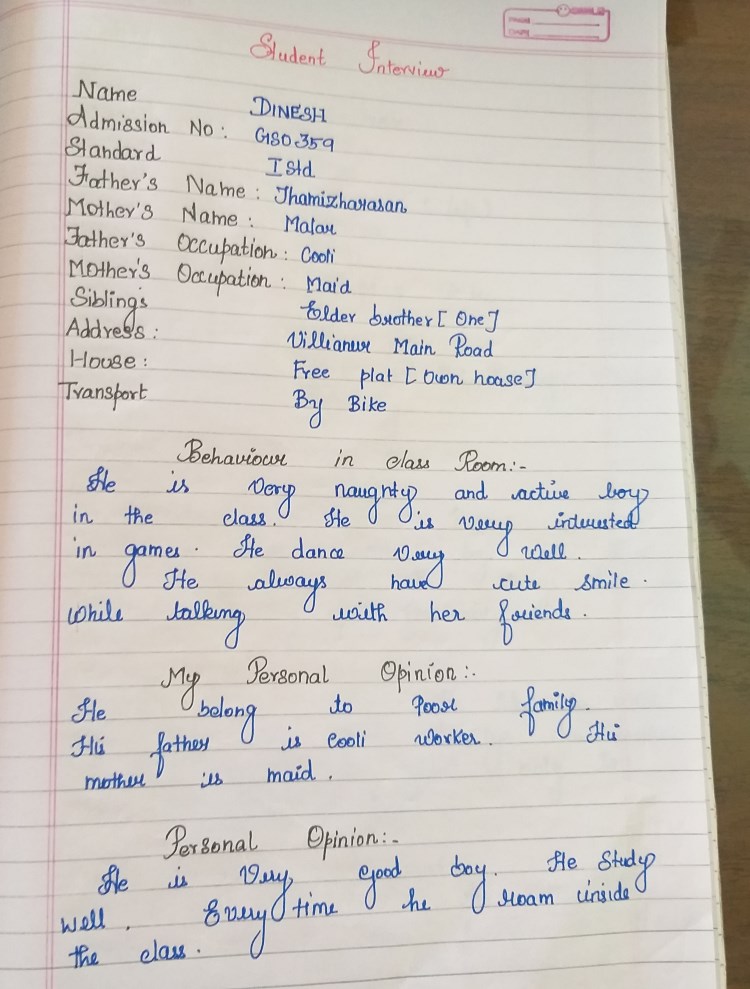 Student Interview
Name DINESH
Admission No : GISO359
Standard I Std
Father's Name : Thamizharasan
Mother's Name : Malar
Father's Occupation : Cooli
Mother's Occupation : Maid
Siblings Elder brother [ One ]
Address : Villianur Main Road
House : Free plat [ Own house ]
Transport By Bike
Behaviour in class Room:-
He is very naughty and active boy
in the class. He is very interested
in games. He dance very well.
He always have cute smile.
while talking with her friends.
My Personal Opinion:-
He belong to Poor family.
His father is cooli worker. His
mother is maid.
Personal Opinion:-
He is very good boy. He Study
well. Every time he roam inside
the class.